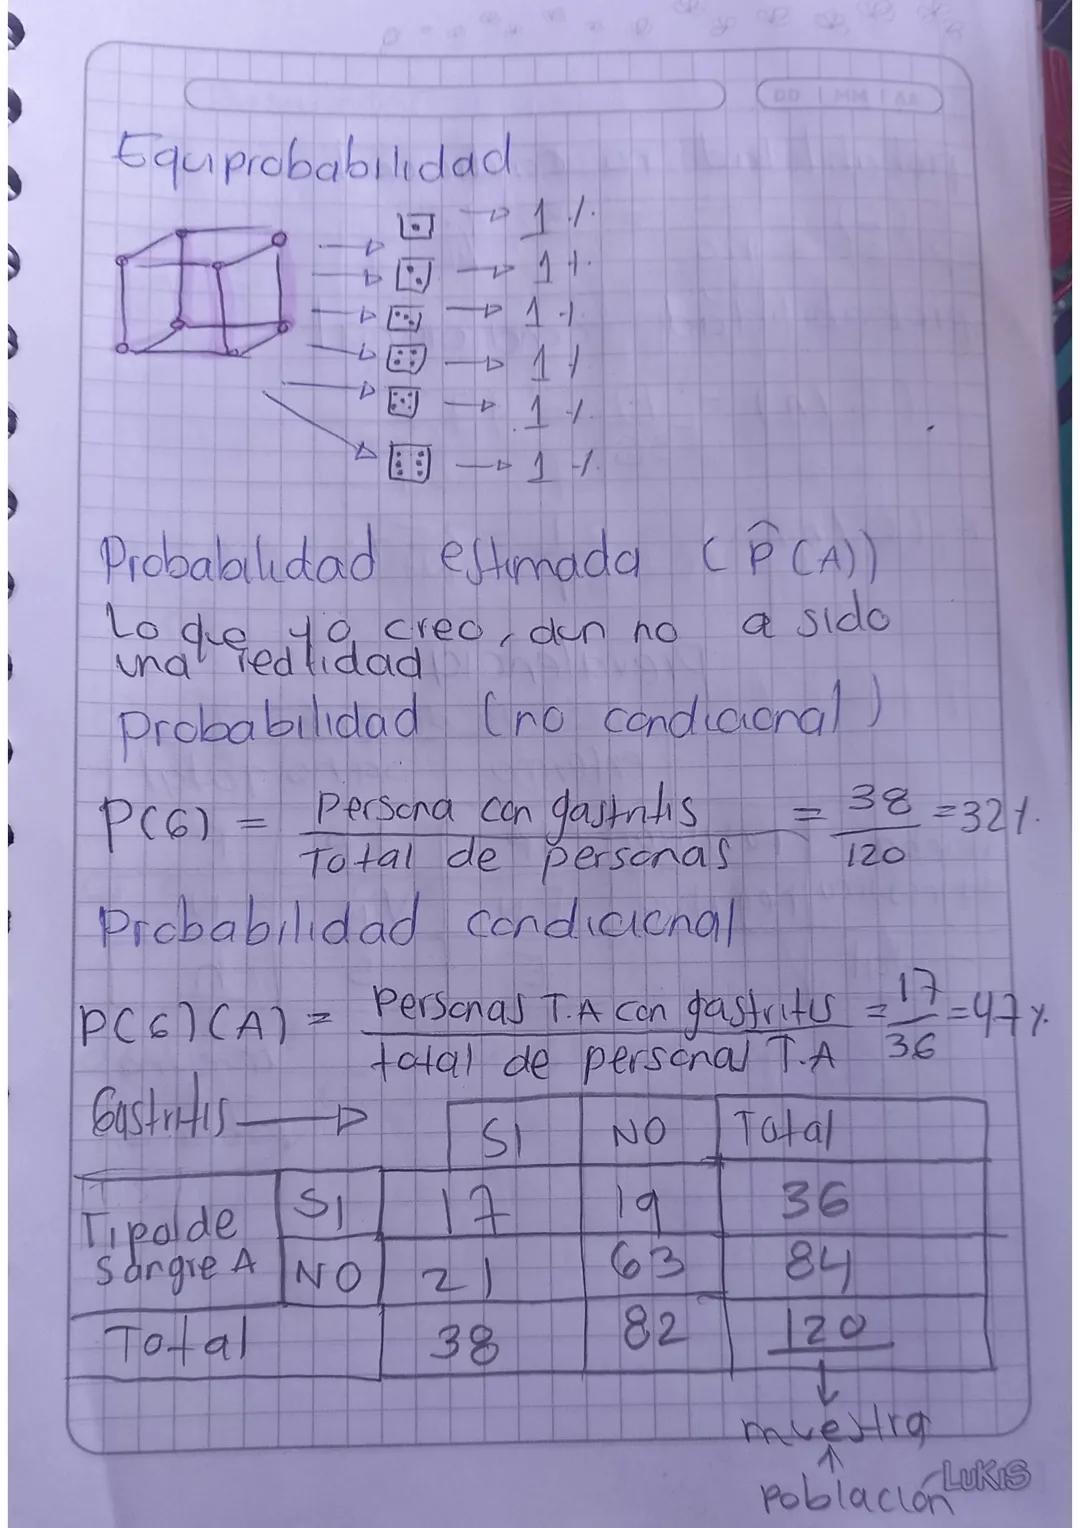 DD | MM | AA
Equiprobabilidad
1 %
1 %
1 %
1 %
1 %
1 %
Probabilidad estimada (P̂(A))
Lo que yo creo, aun no a sido
una realidad
Probabilidad (no condicional)
P(G) = Persona con gastritis / Total de personas = 38/120 = 32%.
Probabilidad condicional
P(G)(A) = Personas T.A con gastritis / total de personal T.A = 17/36 = 47%.
Gastritis → SI NO Total
Tipo de Sangre A SI 17 19 36
NO 21 63 84
Total 38 82 120
muestra
Población
LUKIS